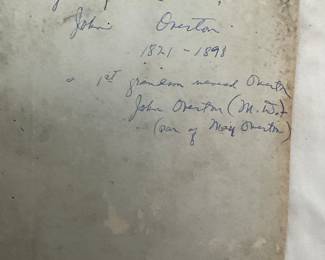 John Overton
1821 - 1898
1st grandson named Overton
John Overton (M. D.)
(son of May Overton)